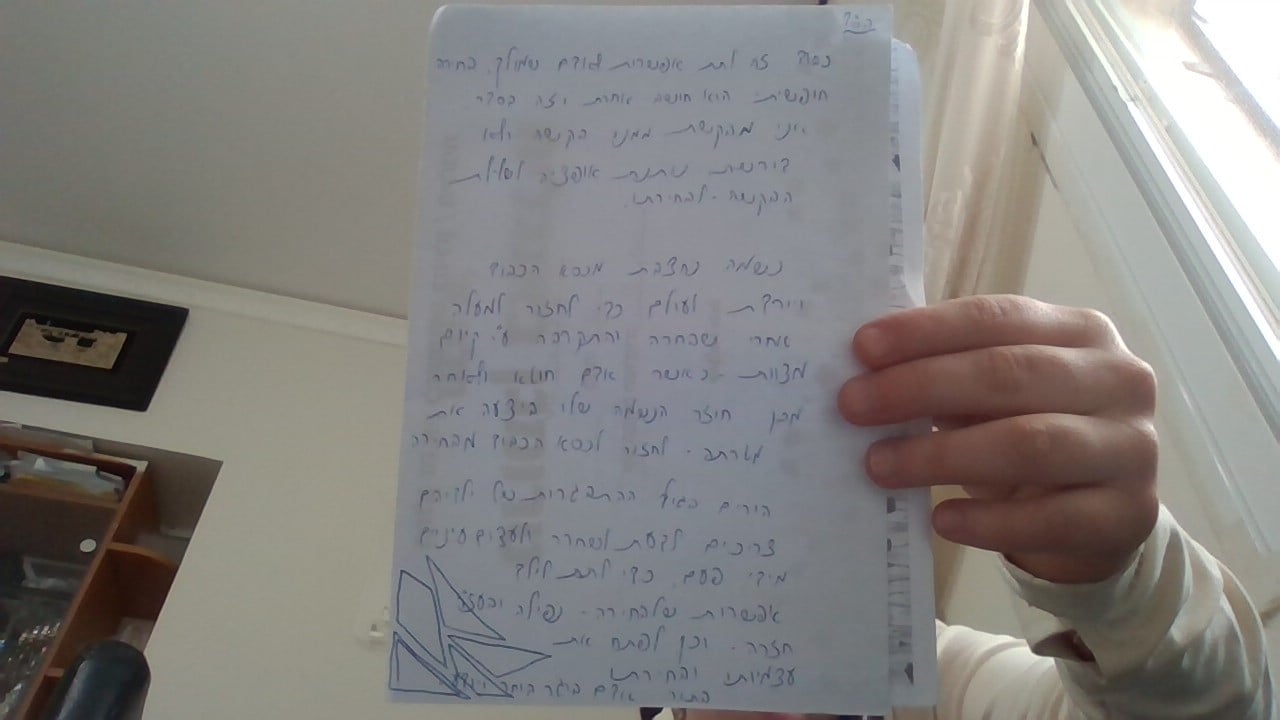 בס"ד
כבוד זה לתת אפשרות לאדם שמולך, בחירה
חופשית. הוא חושב אחרת וזה בסדר
אני מבקשת ממנו בקשה ולא
דורשת נותנת אופציה לשלילת
הבקשה - לבחירתו.
נשמה נחצבת מכסא הכבוד
ויורדת לעולם כדי לחזור למעלה
אחרי שבחרה והתקרבה ע"י קיום
מצוות - כאשר אדם חוטא ולאחר
מכן חוזר הנשמה שלו ביצעה את
מטרתה - לחזור לכסא הכבוד מבחירה
הורים בגיל ההתבגרות של ילדיהם
צריכים לדעת לשחרר ולעצום עינים
מידי פעם, כדי לתת לילד
אפשרות של בחירה - נפילה
חזרה - וכן לפתח את
עצמיותו ובחירתו
בתור אדם בוגר